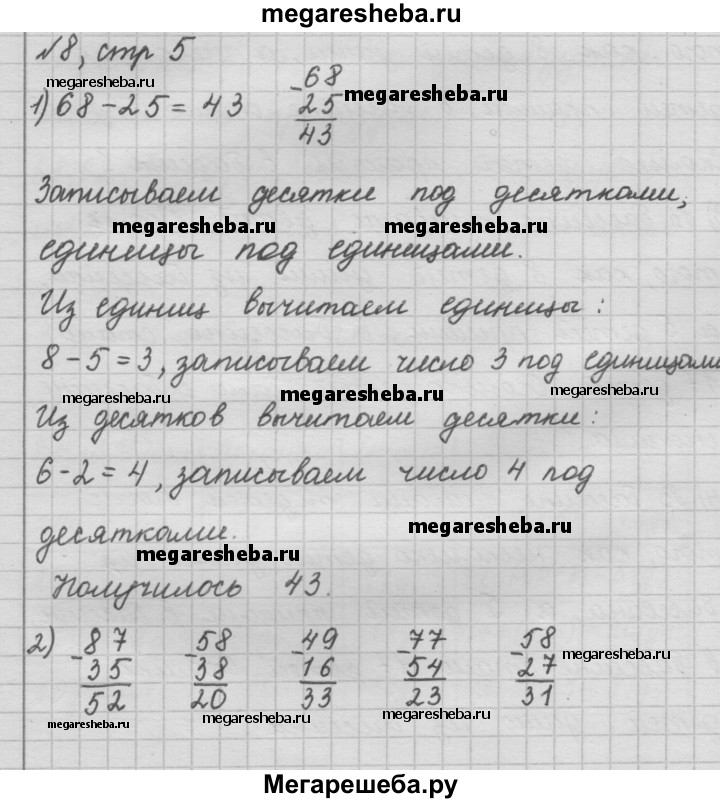 megaresheba.ru
№8, стр 5
megaresheba.ru
1) 68 - 25 = 43
-68
25
43
megaresheba.ru
Записываем десятки под десятками,
megaresheba.ru megaresheba.ru
единицы под единицами.
Из единиц вычитаем единицы:
8 - 5 = 3, записываем число 3 под единицами
megaresheba.ru megaresheba.ru megaresheba.ru
Из десятков вычитаем десятки:
6 - 2 = 4, записываем число 4 под
десятками.
megaresheba.ru megaresheba.ru
Получилось 43.
2) -87 -58 -49 -77 -58
35 38 16 54 27
52 20 33 23 31
megaresheba.ru
megaresheba.ru megaresheba.ru megaresheba.ru
Мегарешеба.ру